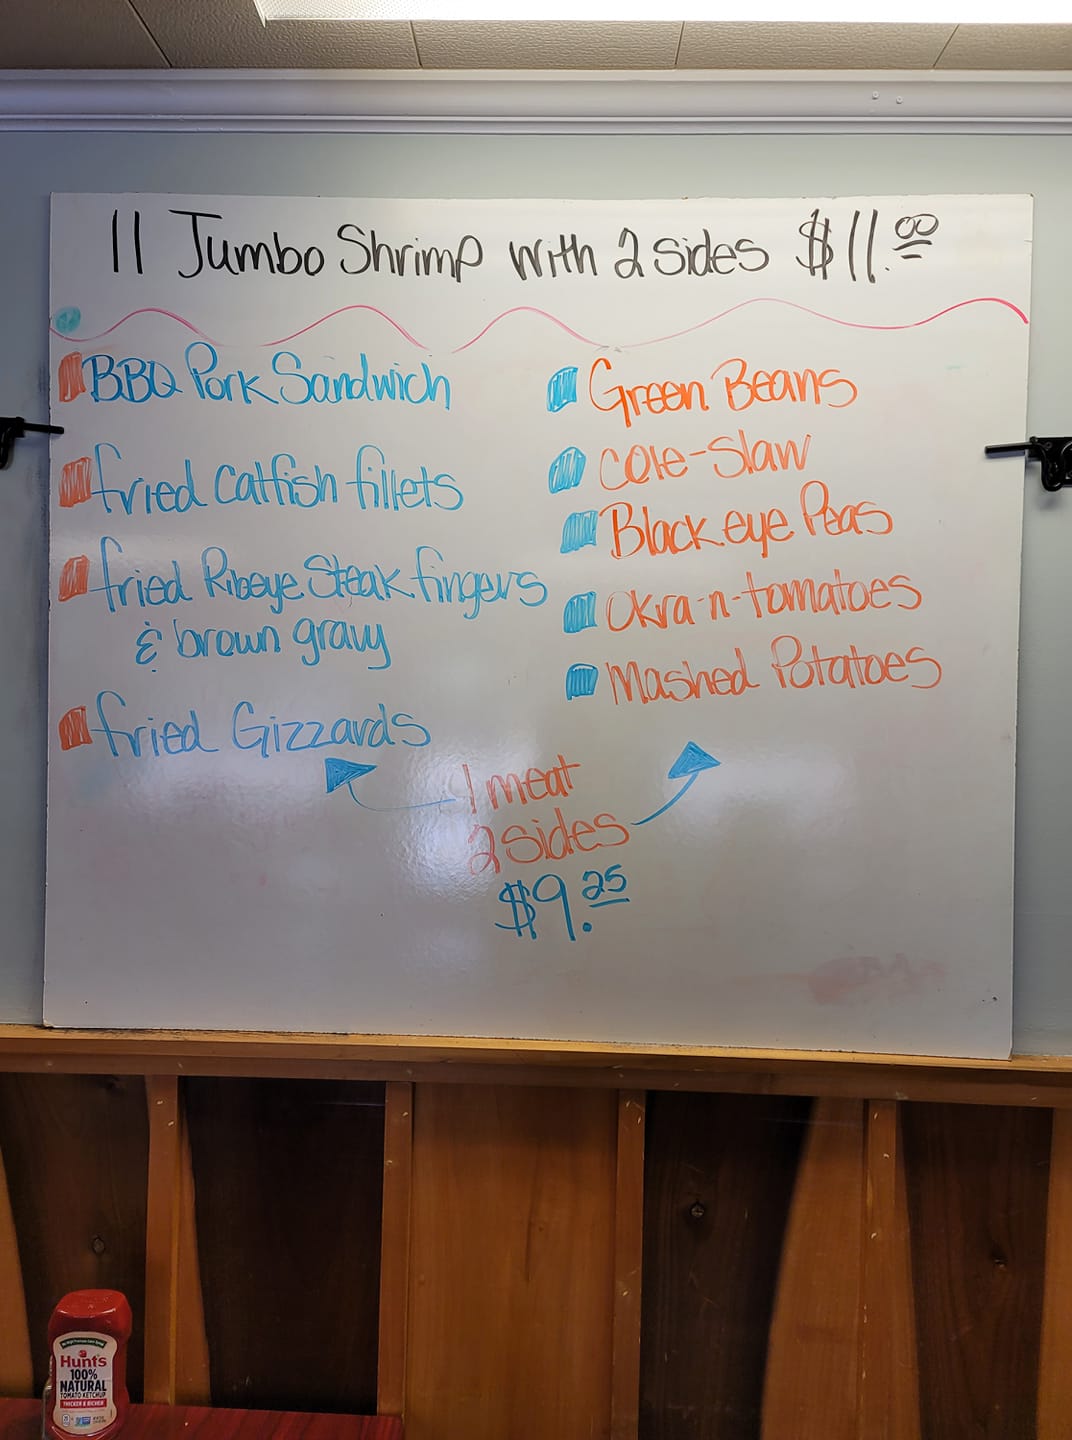 11 Jumbo Shrimp with 2 sides $11.00
BBQ Pork Sandwich
fried Catfish fillets
fried Ribeye Steak fingers
& brown gravy
fried Gizzards
Green Beans
Cole-Slaw
Black eye Peas
Okra-n-tomatoes
Mashed Potatoes
1 meat
2 sides
$9.25
Hunt's
100%
NATURAL
TOMATO KETCHUP
THICKER & RICHER